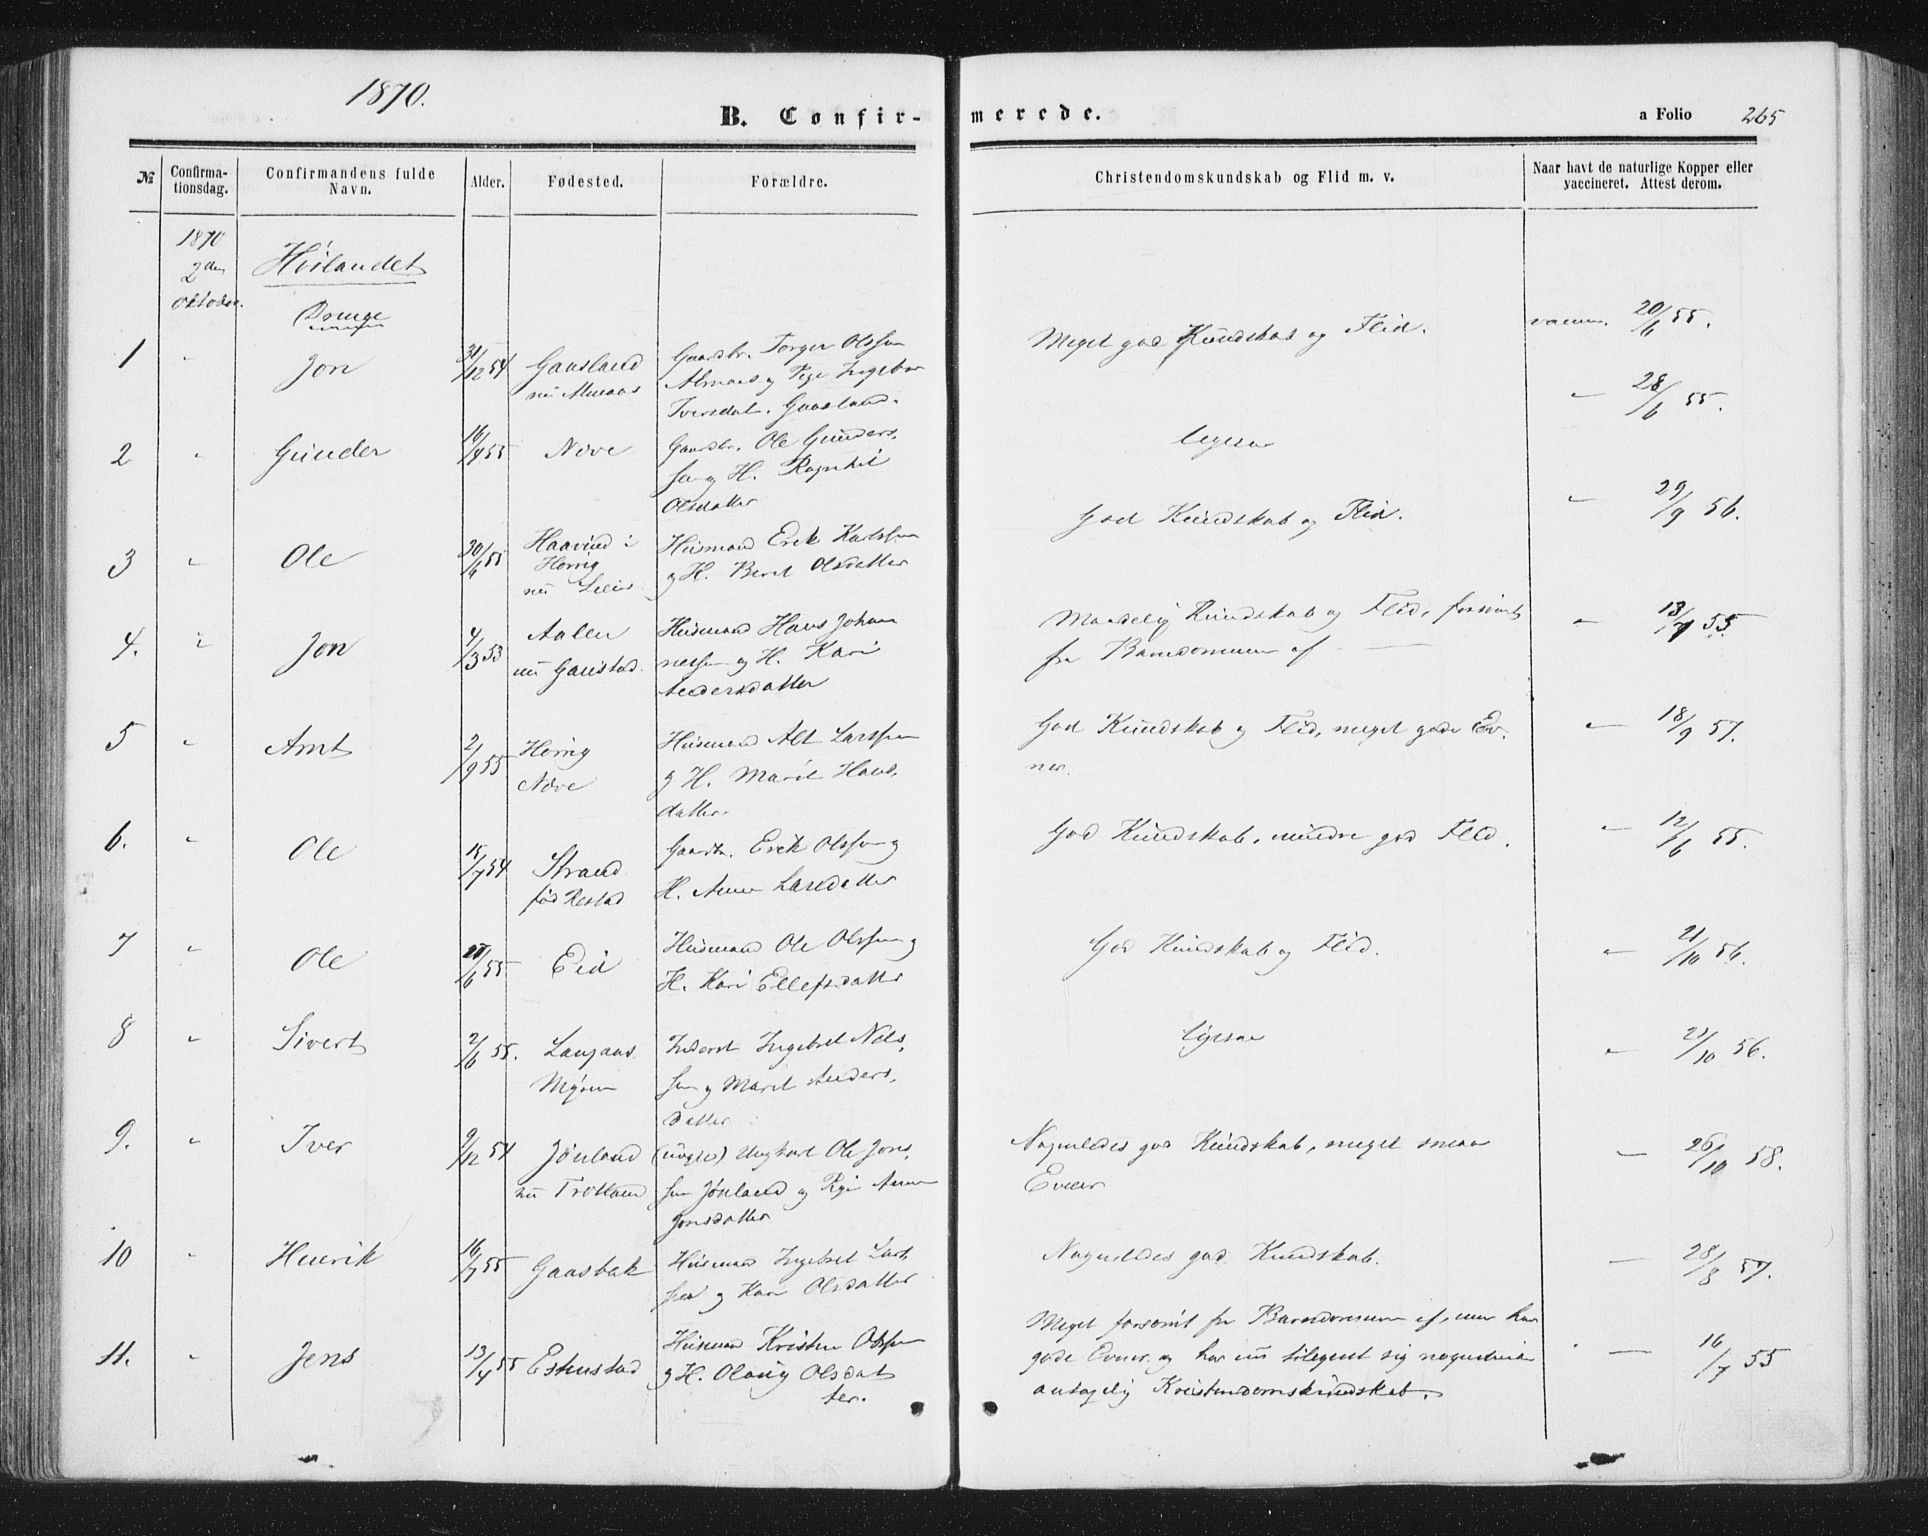 1870.
B. Confirmerede.
a Folio 265
№ Confirmationsdag. Confirmandens fulde Navn. Alder. Fødested. Forældre. Christendomskundskab og Flid m. v. Naar havt de naturlige Kopper eller vaccineret. Attest derom.
1870
2den
Oktober.
Høilandet
Drenge
1 " Jon 31/12 54 Gaasland Gaardbr. Torger Olssen Meget god Kundskab og Flid. vaccin. 20/6 55.
nu Almaas Almaas og Pige Ingebor
Iversdat. Gaasland.
2 " Gunder 16/4 55 Nøve Gaardbr. Ole Gunders- ligesaa " 28/6 55.
sen og H. Ragnhil
Olsdatter
3 " Ole 30/4 55 Haavud i Husmand Erek Karlssen God Kundskab og Flid. " 29/9 56.
Horrig og H. Beret Olsdatter
nu
4. " Jon 4/3 53 Aalen Husmand Hans Johan Maadelig Kundskab og Flid, forsømt " 13/7 55.
nu Gaustad. nessen og H. Kari fra Barndommen af
Andersdatter
5 " Arnt 2/9 55 Horrig Husmand Alt Larssen God Kundskab og Flid, meget gode Ev- " 18/9 57.
Nøve og H. Marit Hans- ner.
datter.
6. " Ole 15/7 54 Strand Gaardbr. Erik Olssen og God Kundskab, mindre god Flid. " 12/6 55.
fød Restad H. Anne Larsdatter
7 " Ole 27/6 55 Eid Husmand Ole Olssen og God Kundskab og Flid. " 21/10 56.
H. Kari Ellefsdatter
8 " Sivert 2/6 55. Langaas Inderst Ingebret Nils- ligesaa " 21/10 56.
Myren sen og Marit Anders-
datter
9. " Iver 9/12 54 Jønland (uægte) Ungkarl Ole Jons- Nogenledes god Kundskab, meget smaa — 26/10 58.
nu Trotland sen Jønland og Pige Anne Evner
Jonsdatter
10 " Henrik 16/7 55 Gaasbak Husmand Ingebret Lars Nogenledes god Kundskab. — 28/8 57.
sen og Kari Olsdatter
11. " Jens 13/4 55 Estenstad Husmand Kristen Olssen Meget forsømt fra Barndommen af, men har — 16/7 55
og H. Olaug Olsdat gode Evner og har nu tilegnet sig nogenlunde
ter. antagelig Kristendomskundskab.